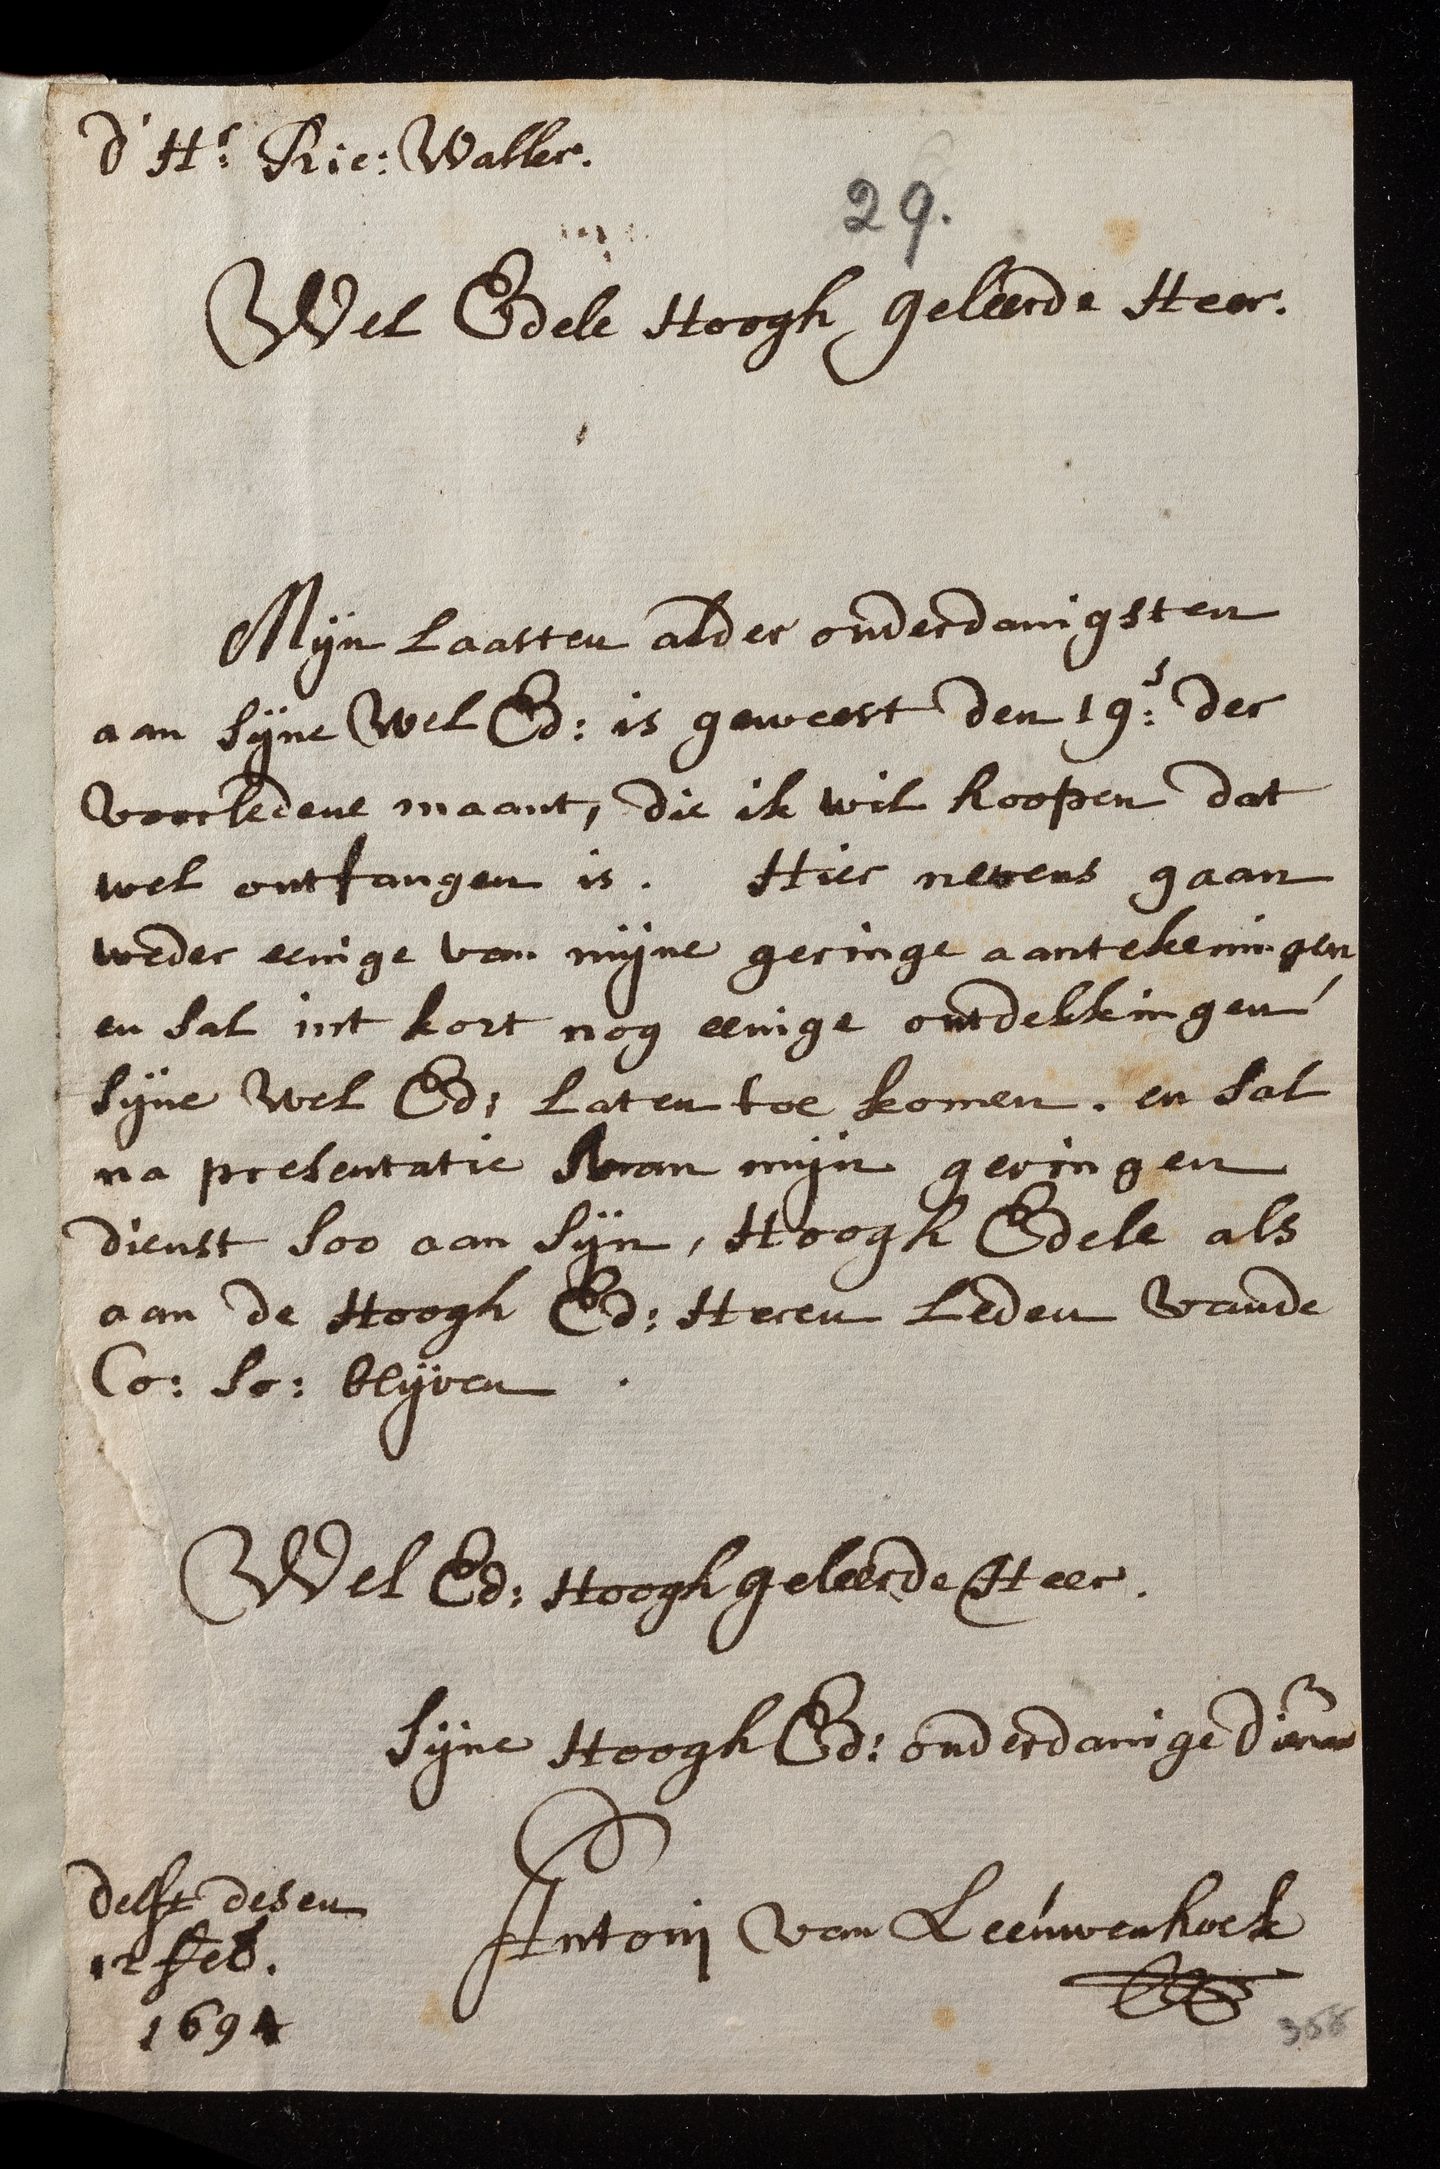 d' Hr: Ric: Waller.
29.
Wel Edele Hoogh geleerde Heer.
Mijn laasten alder onderdanigsten
aan sijne Wel Ed: is geweest den 19s: der
voorledene maant, die ik wil hoopen dat
wel ontfangen is. Hier nevens gaan
weder eenige van mijne geringe aantekeningen
en sal int kort nog eenige ontdekkingen
sijne Wel Ed: laten toe komen. en sal
na presentatie van mijn geringen
dienst soo aan sijn, Hoogh Edele als
aan de Hoogh Ed: Heren Leden vande
Co: So: blijven.
Wel Ed: Hoogh geleerde Heer.
Sijne Hoogh Ed: onderdanige Dienaar
Antonij van Leeúwenhoek
Delft desen
12 feb.
1694